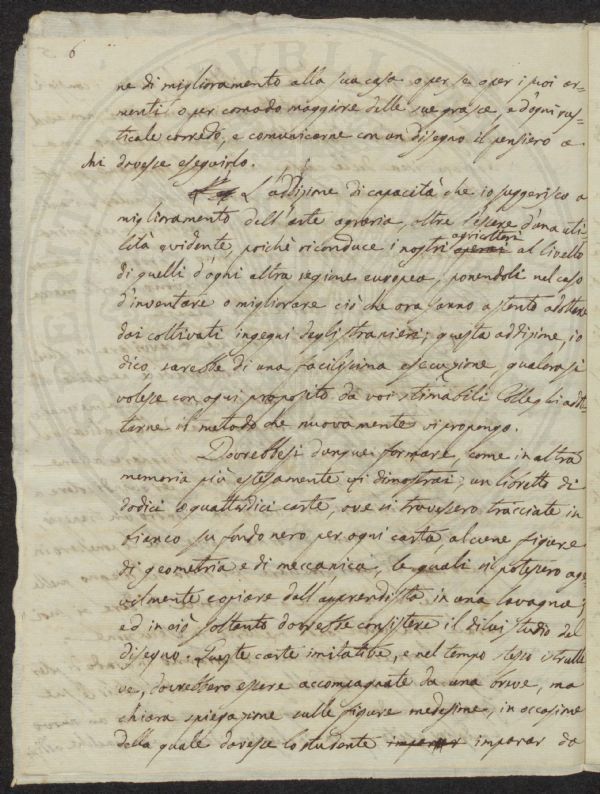 6
ne di miglioramento alla sua casa o per se o per i suoi ar=
menti o per comodo maggiore delle sue grasce, e d'ogni rus=
ticale corredo, e comunicarne con un disegno il pensiero a
chi dovesse eseguirlo.
L'addizione di capacità che io suggerisco a
miglioramento dell'arte agraria, oltre l'essere d'una uti
lità evidente, poichè riconduce i nostri operai agricoltori al livello
di quelli d'ogni altra regione europea, ponendoli nel caso
d'inventare o migliorare ciò che ora sanno a stento adottare
dai coltivati ingegni degli stranieri; questa addizione, io
dico, sarebbe di una facilissima esecuzione, qualora si
volesse con ogni proposito da voi stimabili Colleghi adot=
tarne il metodo che nuovamente vi propongo.
Dovrebbesi dunque formare, come in altra
memoria più estesamente vi dimostrai, un libretto di
dodici o quattordici carte, ove si trovassero tracciate in
bianco su fondo nero per ogni carta, alcune figure
di geometria e di meccanica, le quali si potessero age
volmente copiare dall'apprendista in una lavagna;
ed in ciò soltanto dovesse consistere il di lui studio del
disegno. Queste carte imitative, e nel tempo stesso istrutti
ve, dovrebbero essere accompagnate da una breve, ma
chiara spiegazione sulle figure medesime, in occasione
della quale dovesse lo studente imparar imparar da